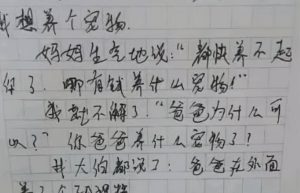 我想养个宠物.
妈妈生气地说:“都快养不起
你了.哪有钱养什么宠物!”
我就不解了.“爸爸为什么可
以?”你爸爸养什么宠物了?
我大伯都说了:爸爸在外面
养了个